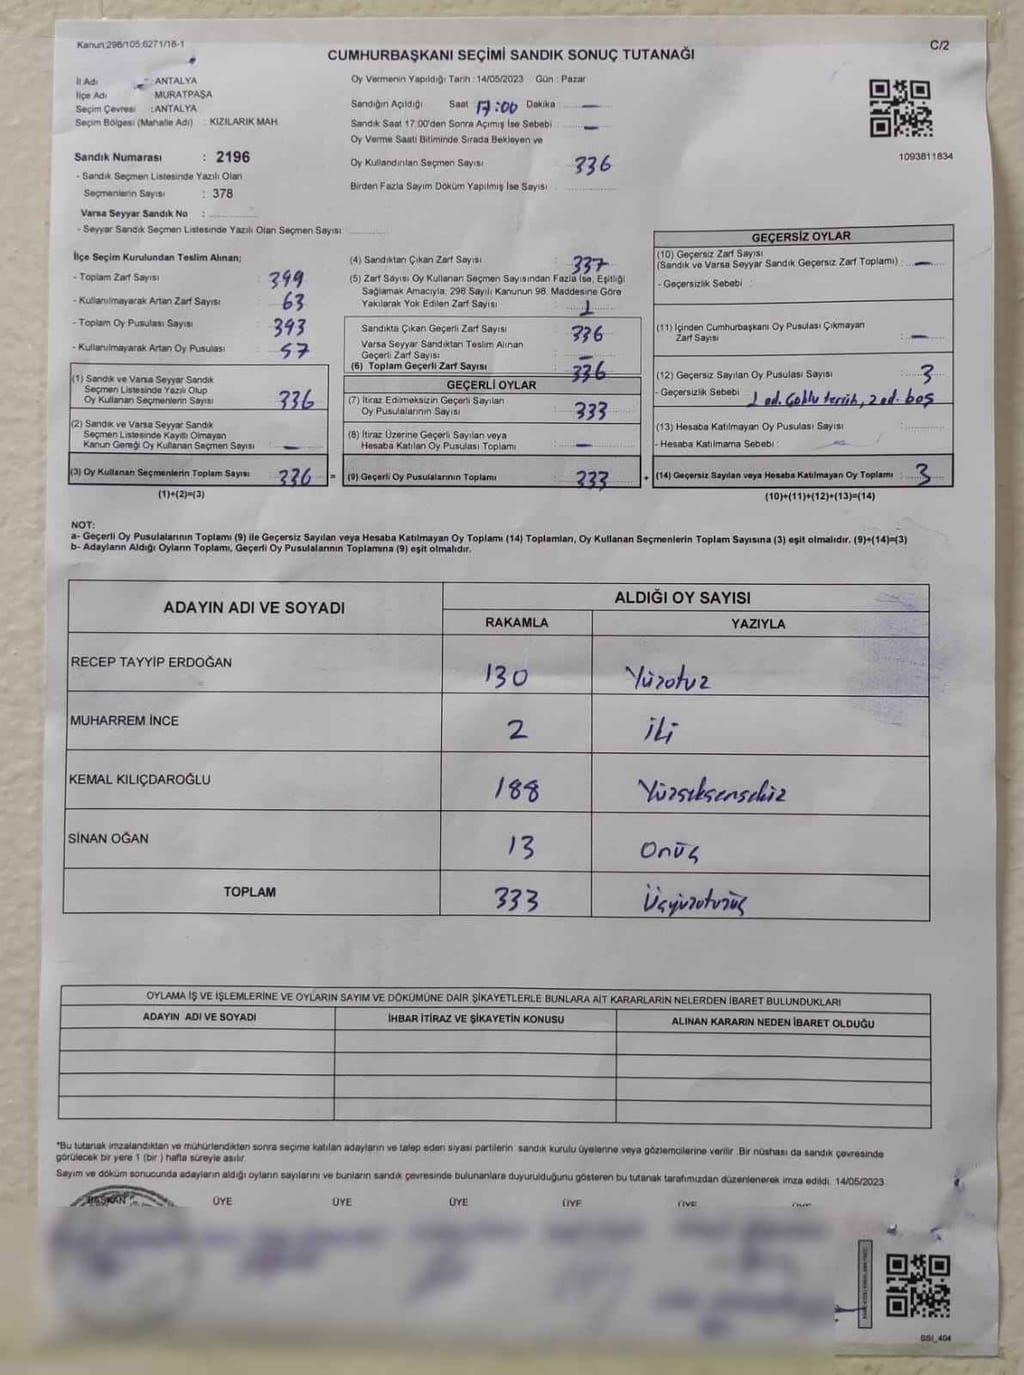 Kanun:298/105;6271/18-1
C/2
CUMHURBAŞKANI SEÇİMİ SANDIK SONUÇ TUTANAĞI
İl Adı : ANTALYA
İlçe Adı : MURATPAŞA
Seçim Çevresi : ANTALYA
Seçim Bölgesi (Mahalle Adı) : KIZILARIK MAH.
Sandık Numarası : 2196
- Sandık Seçmen Listesinde Yazılı Olan
Seçmenlerin Sayısı : 378
Varsa Seyyar Sandık No :
- Seyyar Sandık Seçmen Listesinde Yazılı Olan Seçmen Sayısı:
Oy Vermenin Yapıldığı Tarih : 14/05/2023 Gün : Pazar
Sandığın Açıldığı Saat 17:00 Dakika —
Sandık Saat 17:00'den Sonra Açımış İse Sebebi : —
Oy Verme Saati Bitiminde Sırada Bekleyen ve
Oy Kullandırılan Seçmen Sayısı 336
Birden Fazla Sayım Döküm Yapılmış İse Sayısı :
1093811834
İlçe Seçim Kurulundan Teslim Alınan;
- Toplam Zarf Sayısı : 399
- Kullanılmayarak Artan Zarf Sayısı : 63
- Toplam Oy Pusulası Sayısı : 393
- Kullanılmayarak Artan Oy Pusulası : 57
(1) Sandık ve Varsa Seyyar Sandık
Seçmen Listesinde Yazılı Olup
Oy Kullanan Seçmenlerin Sayısı : 336
(2) Sandık ve Varsa Seyyar Sandık
Seçmen Listesinde Kayıtlı Olmayan
Kanun Gereği Oy Kullanan Seçmen Sayısı : —
(3) Oy Kullanan Seçmenlerin Toplam Sayısı : 336 =
(1)+(2)=(3)
(4) Sandıktan Çıkan Zarf Sayısı : 337
(5) Zarf Sayısı Oy Kullanan Seçmen Sayısından Fazla İse, Eşitliği
Sağlamak Amacıyla; 298 Sayılı Kanunun 98. Maddesine Göre
Yakılarak Yok Edilen Zarf Sayısı : 1
Sandıkta Çıkan Geçerli Zarf Sayısı : 336
Varsa Seyyar Sandıktan Teslim Alınan
Geçerli Zarf Sayısı : —
(6) Toplam Geçerli Zarf Sayısı : 336
GEÇERLİ OYLAR
(7) İtiraz Edilmeksizin Geçerli Sayılan
Oy Pusulalarının Sayısı : 333
(8) İtiraz Üzerine Geçerli Sayılan veya
Hesaba Katılan Oy Pusulası Toplamı : —
(9) Geçerli Oy Pusulalarının Toplamı : 333 +
GEÇERSİZ OYLAR
(10) Geçersiz Zarf Sayısı
(Sandık ve Varsa Seyyar Sandık Geçersiz Zarf Toplamı) : —
- Geçersizlik Sebebi :
(11) İçinden Cumhurbaşkanı Oy Pusulası Çıkmayan
Zarf Sayısı : —
(12) Geçersiz Sayılan Oy Pusulası Sayısı : 3
- Geçersizlik Sebebi : 1 ad. Çoklu tercih, 2 ad. boş
(13) Hesaba Katılmayan Oy Pusulası Sayısı :
- Hesaba Katılmama Sebebi :
(14) Geçersiz Sayılan veya Hesaba Katılmayan Oy Toplamı : 3
(10)+(11)+(12)+(13)=(14)
NOT:
a- Geçerli Oy Pusulalarının Toplamı (9) ile Geçersiz Sayılan veya Hesaba Katılmayan Oy Toplamı (14) Toplamları, Oy Kullanan Seçmenlerin Toplam Sayısına (3) eşit olmalıdır. (9)+(14)=(3)
b- Adayların Aldığı Oyların Toplamı, Geçerli Oy Pusulalarının Toplamına (9) eşit olmalıdır.
ADAYIN ADI VE SOYADI
ALDIĞI OY SAYISI
RAKAMLA YAZIYLA
RECEP TAYYİP ERDOĞAN 130 Yüzotuz
MUHARREM İNCE 2 iki
KEMAL KILIÇDAROĞLU 188 Yüzseksensekiz
SİNAN OĞAN 13 Onüç
TOPLAM 333 Üçyüzotuzüç
OYLAMA İŞ VE İŞLEMLERİNE VE OYLARIN SAYIM VE DÖKÜMÜNE DAİR ŞİKAYETLERLE BUNLARA AİT KARARLARIN NELERDEN İBARET BULUNDUKLARI
ADAYIN ADI VE SOYADI İHBAR İTİRAZ VE ŞİKAYETİN KONUSU ALINAN KARARIN NEDEN İBARET OLDUĞU
*Bu tutanak imzalandıktan ve mühürlendikten sonra seçime katılan adayların ve talep eden siyasi partilerin sandık kurulu üyelerine veya gözlemcilerine verilir .Bir nüshası da sandık çevresinde
görülecek bir yere 1 (bir ) hafta süreyle asılır.
Sayım ve döküm sonucunda adayların aldığı oyların sayılarını ve bunların sandık çevresinde bulunanlara duyurulduğunu gösteren bu tutanak tarafımızdan düzenlenerek imza edildi. 14/05/2023
BAŞKAN ÜYE ÜYE ÜYE ÜYE ÜYE ÜYE
SSI_404